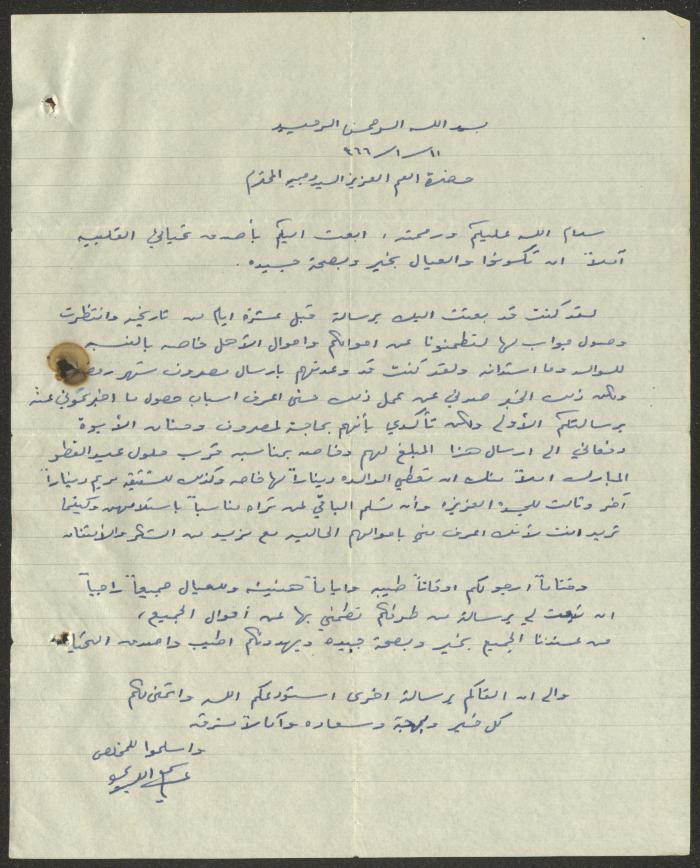 بسم الله الرحمن الرحيم
١١ـ١ـ٩٦٦
حضرة العم العزيز السيد المحترم
سلام الله عليكم ورحمته، ابعث اليكم بأصدق تحياتي القلبيه
آملاً ان تكونوا والعيال بخير وبصحة جيده.
لقد كنت قد بعثت اليك برسالة قبل عشرة ايام من تاريخه وانتظرت
وصول جواب لها لتطمنونا عن احوالكم واحوال الأهل خاصه بالنسبه
للوالد وما استدانه ولقد كنت قد وعدتهم بارسال مصروف شهر
ولكن ذلك الخبر صدني عن عمل ذلك حتى اعرف اسباب حصول ما اخبرتموني عنه
برسالتكم الأولى ولكن تأكدي بأنهم بحاجة لمصروف وحنان الأبوة
دفعاني الى ارسال هذا المبلغ لهم وخاصه بمناسبه قرب حلول عيد الفطر
المبارك املاً منك ان تعطي الوالده ديناراً لها خاصه وكذلك للشقيقه مريم ديناراً
آخر وثالث للجده العزيزه وأن تسلم الباقي لمن تراه مناسباً باستلامهن وكيفما
تريد انت لأنك اعرف مني باحوالهم الحاليه مع مزيد من الشكر والأمتنان
وختاماً ارجو لكم اوقاتاً طيبه واياماً هنيئه وللعيال جميعاً راجياً
ان تبعث لي برسالة من طرفكم تطمني بها عن أحوال الجميع،
من عندنا الجميع بخير وبصحة جيده ويهدونكم اطيب واصدق التحيات
والى ان القاكم برسالة اخرى استودعكم الله واتمنى لكم
كل خير وبهجة وسعاده وآمالاً مشرقه
واسلموا للمخلص